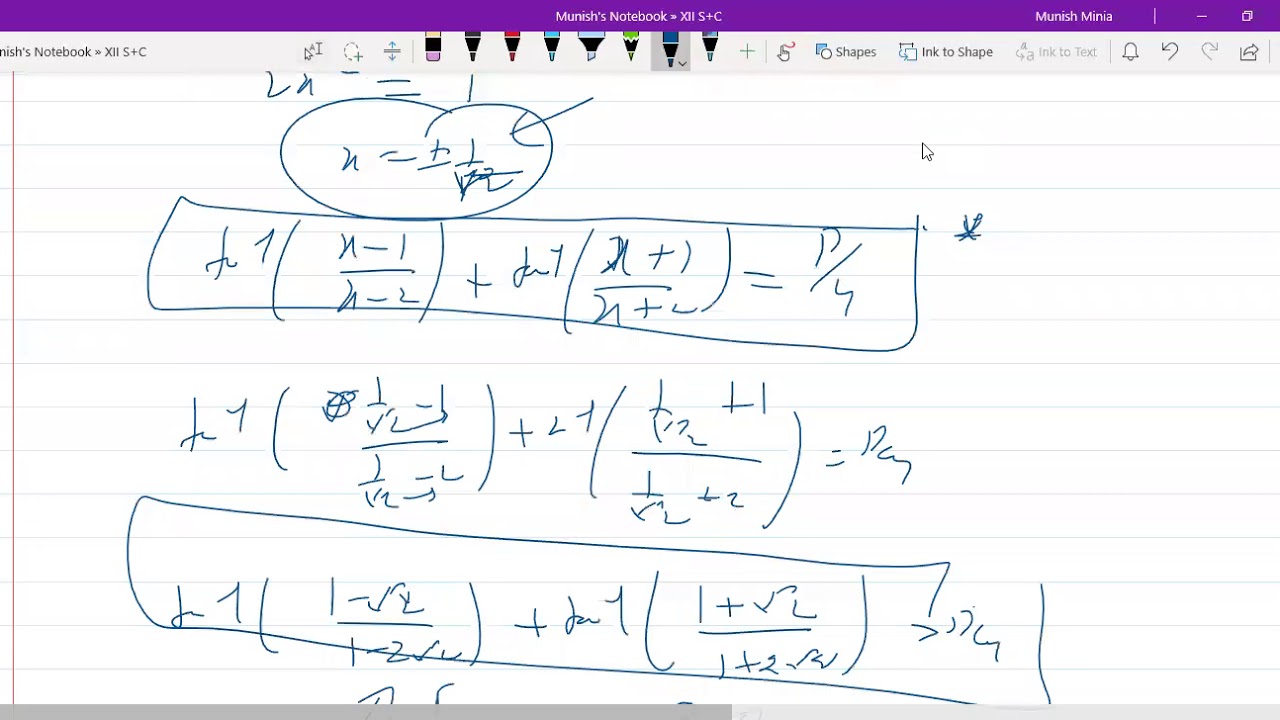 Munish's Notebook » XII S+C
Munish Minia
nish's Notebook » XII S+C
Shapes
Ink to Shape
Ink to Text
2x² = 1
x = ± 1/√2
tan⁻¹( (x-1)/(x-2) ) + tan⁻¹( (x+1)/(x+2) ) = π/4
tan⁻¹( (1/√2 -1)/(1/√2 -2) ) + tan⁻¹( (1/√2 +1)/(1/√2 +2) ) = π/4
tan⁻¹( (1-√2)/(1-2√2) ) + tan⁻¹( (1+√2)/(1+2√2) ) = π/4